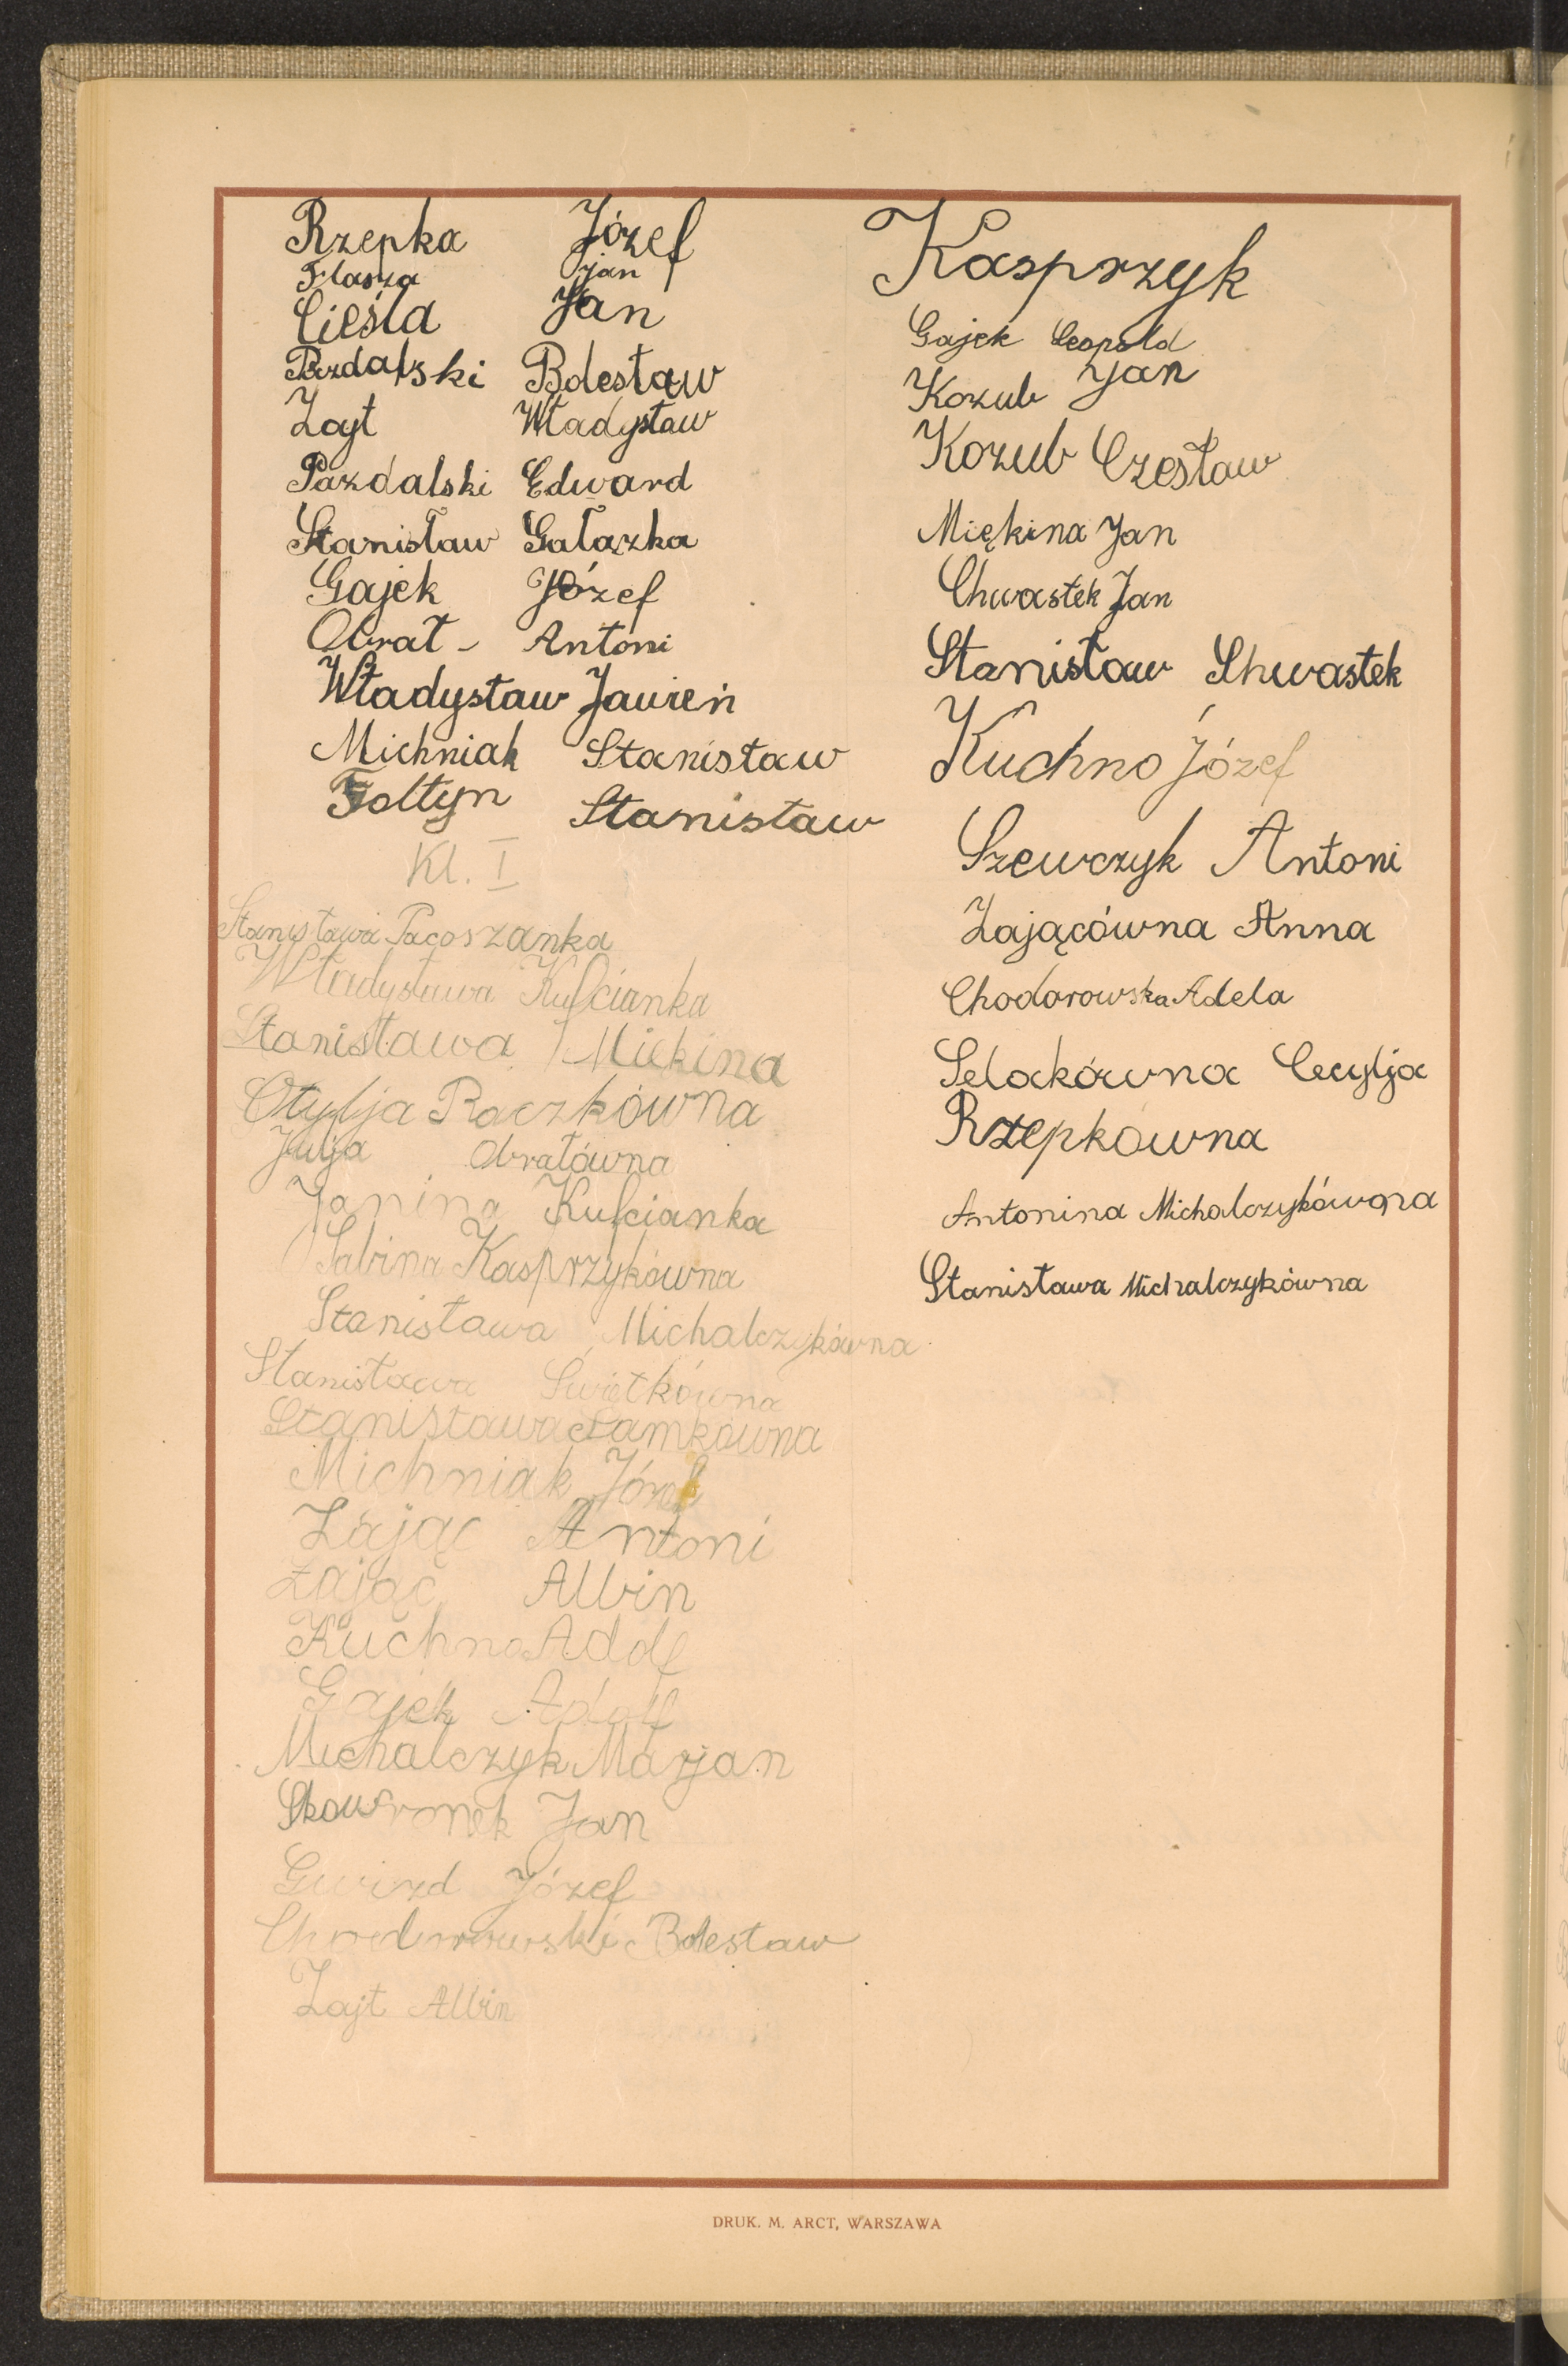 Rzepka Józef
Flasza Jan
Cieśla Jan
Pazdalski Bolesław
Zayt Władysław
Pazdalski Edward
Stanisław Gałązka
Gajek Józef
Obrał - Antoni
Władysław Jawień
Michniak Stanisław
Foltyn Stanisław
Kl. I
Stanisława Pacoszanka
Władysława Kuścianka
Stanisława Miękina
Otylja Raczkówna
Julja Obratówna
Janina Kuścianka
Sabina Kasprzykówna
Stanisława Michalczykówna
Stanisława Świętkówna
Stanisława
Michniak Józef
Zając Antoni
Zając Albin
Kuchno Adolf
Gajek Adolf
Michalczyk Marjan
Skowronek Jan
Gwizd Józef
Chodorowski Bolesław
Zajt Albin
Kasprzyk
Gajek Leopold
Kozub Jan
Kozub Czesław
Miękina Jan
Chwastek Jan
Stanisław Chwastek
Kuchno Józef
Szewczyk Antoni
Zającówna Anna
Chodorowska Adela
Selakówna Cecylja
Rzepkówna
Antonina Michalczykówna
Stanisława Michalczykówna
DRUK. M. ARCT, WARSZAWA